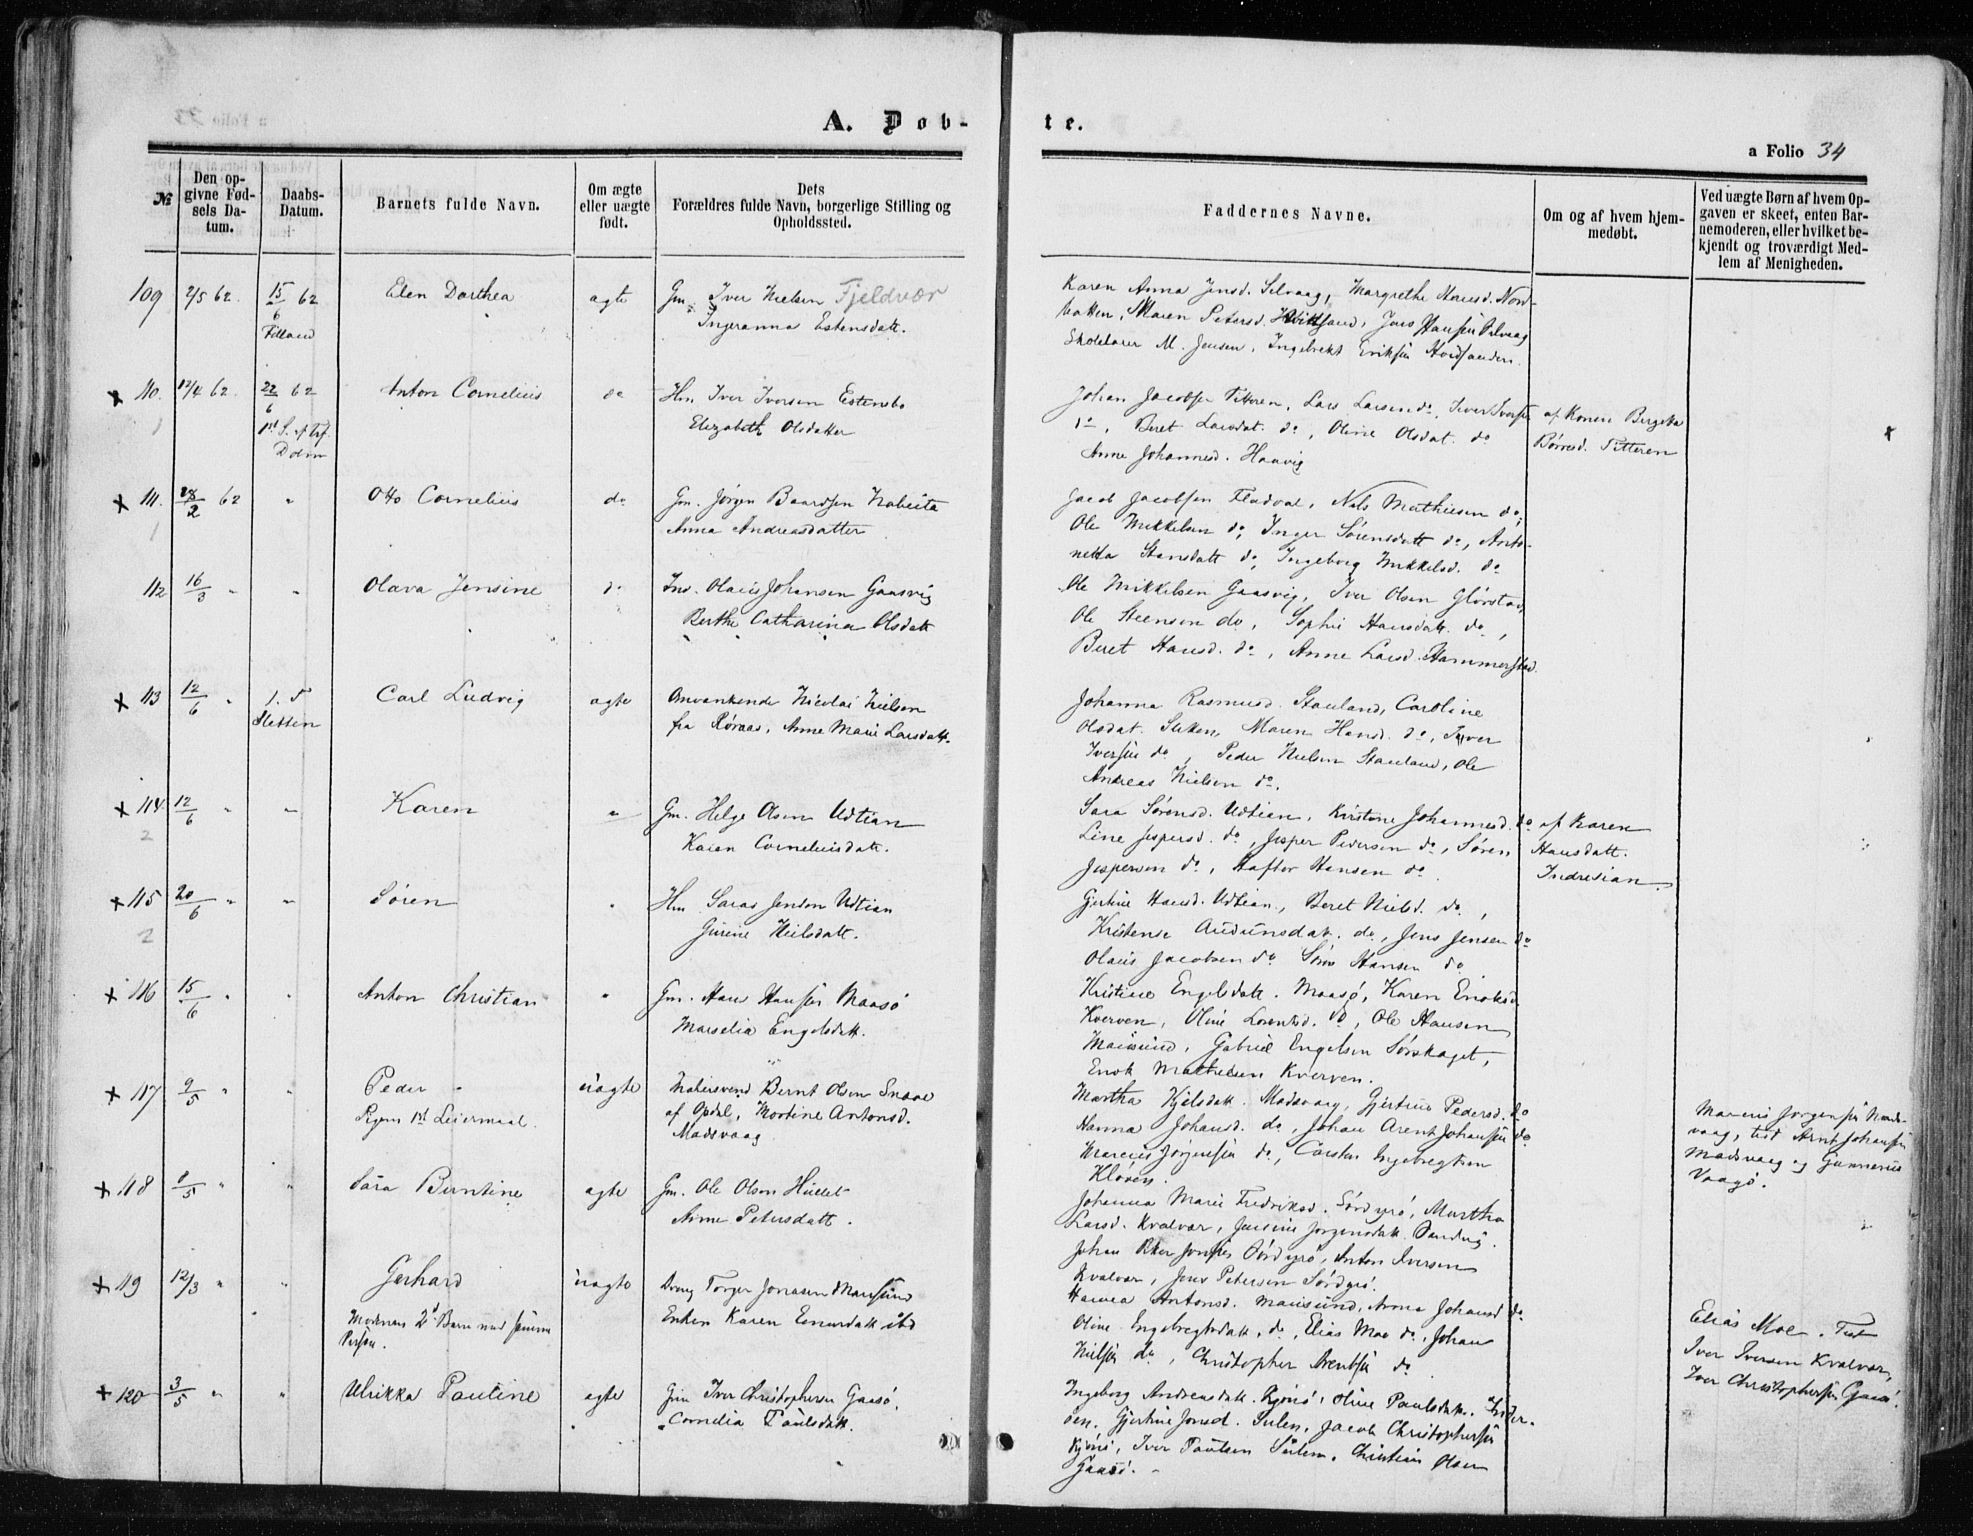 A. Døb-
te.
a Folio 34
№
Den op-
givne Fød-
sels Da-
tum.
Daabs-
Datum.
Barnets fulde Navn.
Om ægte
eller uægte
født.
Dets
Forældres fulde Navn, borgerlige Stilling og
Opholdssted.
Faddernes Navne.
Om og af hvem hjem-
medøbt.
Ved uægte Børn af hvem Op-
gaven er skeet, enten Bar-
nemoderen, eller hvilket be-
kjendt og troværdigt Med-
lem af Menigheden.
109 2/5 62. 15/6 62 Elen Dorthea ægte Gm. Iver Nielsen Fjeldvær
Filland Ingeranna Estensdatt.
Karen Anna Jensd. Selvaag, Margrethe Hansd. Nord-
bakken, Maren Petersd. Hvitsand, Jens Hansen Selvaag
Skolelærer M. Jensen, Ingebrekt Eriksen
110. 12/4 62. 22/6 62 Anton Cornelius do Hm Iver Iversen Estensbo
1st S. ef. Trf. Dolm Elizabeth Olsdatter
Johan Jacobsen Titteren, Lars Larsen do, Iver Iversen
do, Beret Larsdat. do, Oline Olsdat. do
Anne Johannesd. Haavig
af Konen Bergitta
Børresd. Titteren
111. 28/2 62 " Otto Cornelius do Gm. Jørgen Baardsen
Anna Andreasdatter
Jacob Jacobsen Fladval, Nils Mathiesen do,
Ole Mikkelsen do, Inger Sørensdatt do, Anto-
netta Hansdatt do, Ingeborg Mikkelsd. do
112 16/3 " " Olava Jensine do Ins. Olaus Johansen Gaasvig
Berthe Catharina Olsdatt
Ole Mikkelsen Gaasvig, Iver Olsen Glørstad,
Ole Steensen do, Sophie Hansdatt. do,
Beret Hansd. do, Anne Larsd. Hammerstad.
113 12/6 " Sletten Carl Ludvig ægte Omvankende Nicolai Nielsen
fra Røraas, Anne Marie Larsdatt.
Johanna Rasmusd. Stauland, Caroline
Olsdat. Sletten, Maren Hansd. do, Iver
Iversen do, Peder Nielsen Stauland, Ole
Andreas Nielsen do.
114 12/6 " " Karen " Gm. Helge Olsen Udtian
Karen Corneliusdatt.
Sara Sørensd. Udtian, Kirstine Johannesd. do
Line Jespersd. do, Jesper Pedersen do, Søren
Jespersen do, Haftor Hansen do.
af Karen
Hansdatt.
Indretian.
115 20/6 " " Søren " Hm Saras Jensen Udtian
Gurine Nielsdatt.
Gjertine Hansd. Udtian, Beret Nielsd. do,
Kristense Audunsdat. do, Jens Jensen do
Olaus Jacobsen do Søren Hansen do
116 15/6 " " Anton Christian " Gm. Hans Hansen Maasø
Marselia Engelsdatt.
Kristine Engelsdatt. Maasø, Karen Enoksd.
Kverven, Oline Lorentsd. do, Ole Hansen
Mausund, Gabriel Engelsen Sørskaget,
Enok Mathiesen Kverven.
117 9/5 " " Peder uægte Bernt Olsen
1st Leiermaal. af Opdal, Mortine Antonsd.
Madsvaag
Martha Kjelsdatt. Madsvaag, Gjertine Pedersd. do
Hanna Johansd. do, Johan Arent Johansen do
Marcus Jørgensen do, Carsten Ingebregtsen
Kløven.
Marcus Jørgensen Mads-
vaag, test Arnt Johansen
Madsvaag og Gunnerius
Vaagø.
118 8/5 " " Sara Berntine ægte Gm. Ole Olsen
Anne Petersdatt.
Johanna Marie Fredriksd. Sørdyrø, Martha
Larsd. Kvalvær, Jensine Jørgensdatt. Sandvig.
Johan Peter Jonsen Sørdyrø, Anton Iversen
Kvalvær, Jens Petersen Sørdyrø.
119 12/3 " " Gerhard uægte Torger Jonasen Mausund
Moderens 2d Barn med samme Person. Enken Karen Einersdatt ibd
Hanna Antonsd. Mausund, Anna Johansd do
Oline Engebregtsdatt. do, Elias Moe do, Johan
Nielsen do, Christopher Arentsen do.
Elias Moe. Test
Iver Iversen Kvalvær,
Iver Christophersen Gaasø.
120 3/5 " " Ulrikka Pauline ægte Gm Iver Christophersen Gaasø.
Cornelia Paulsdatt.
Ingeborg Andreasdatt. Kjønø, Oline Paulsdatt.
Gjertine Jonsd. Sulen, Jacob Christophersen
Kjønø, Iver Paulsen Sulen, Christian Olsen
Gaasø.